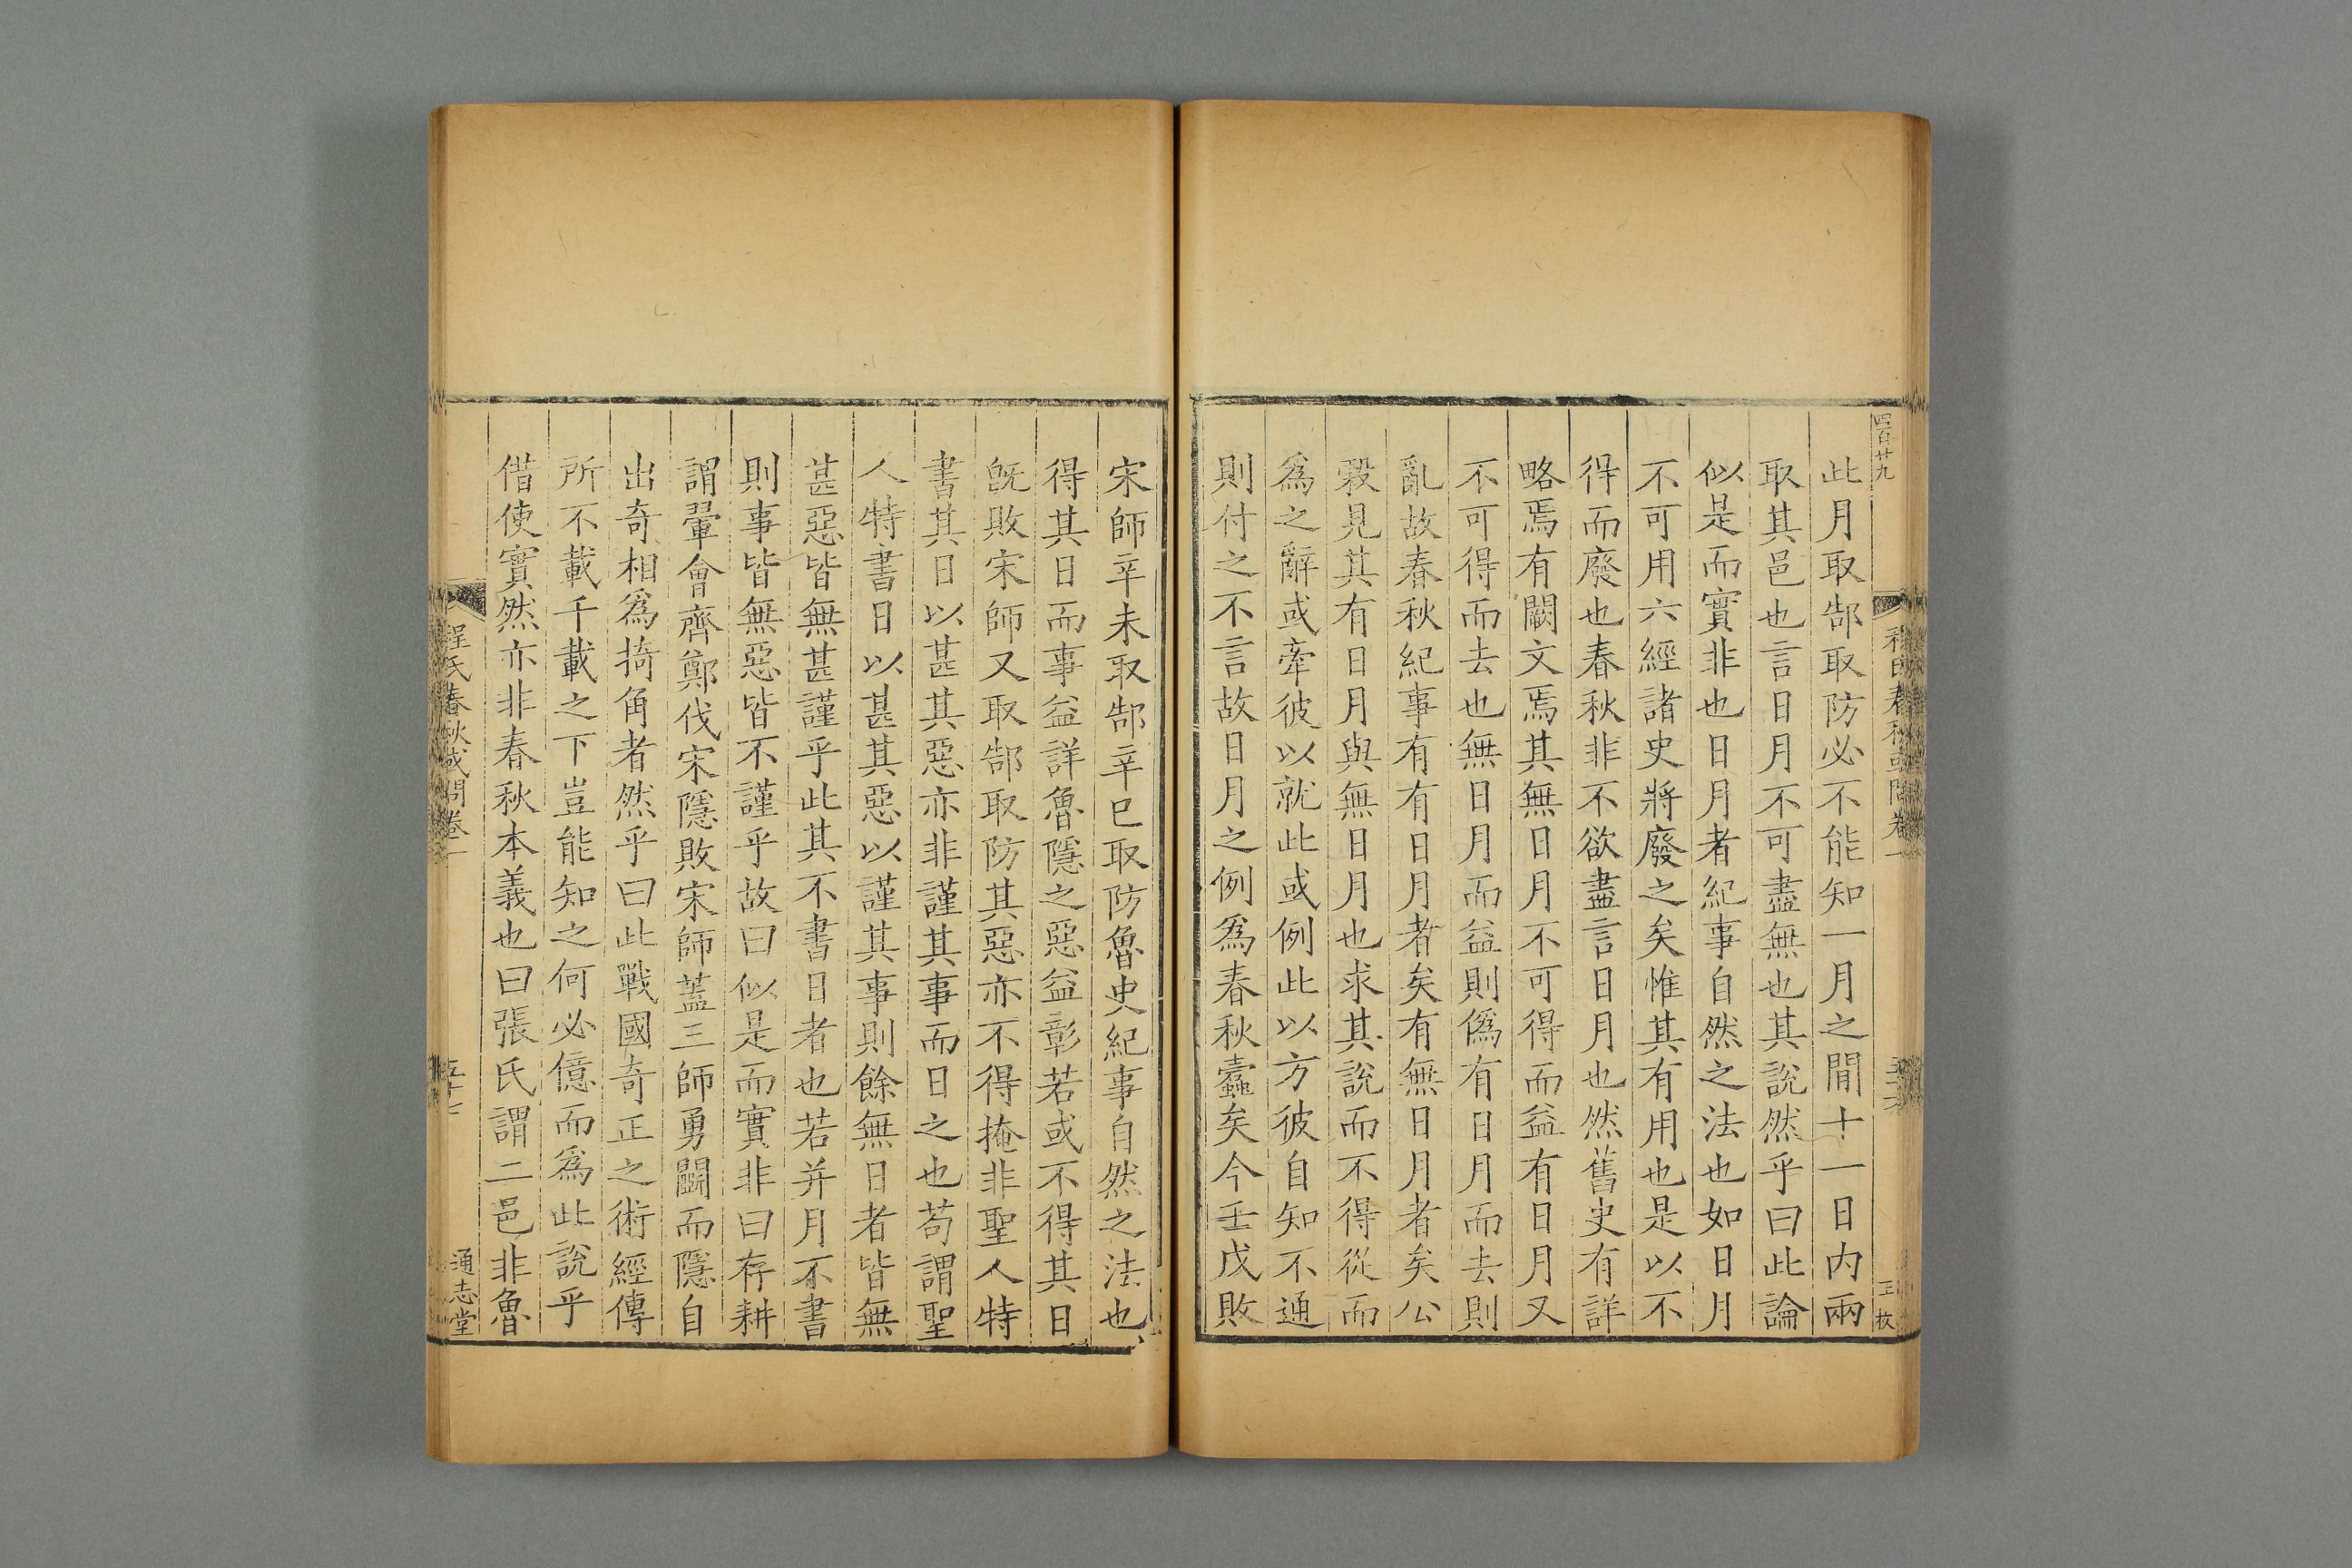 四百廿九
此月取郜取防必不能知一月之間十一日内兩
取其邑也言日月不可盡無也其説然乎曰此論
似是而實非也日月者紀事自然之法也如日月
不可用六經諸史將廢之矣惟其有用也是以不
得而廢也春秋非不欲盡言日月也然舊史有詳
略焉有闕文焉其無日月不可得而益有日月又
不可得而去也無日月而益則僞有日月而去則
亂故春秋紀事有有日月者矣有無日月者矣公
穀見其有日月與無日月也求其説而不得從而
爲之辭或牽彼以就此或例此以方彼自知不通
則付之不言故日月之例爲春秋蠹矣今壬戌敗
宋師辛未取郜辛巳取防魯史紀事自然之法也
得其日而事益詳魯隱之惡益彰若或不得其日
旣敗宋師又取郜取防其惡亦不得掩非聖人特
書其日以甚其惡亦非謹其事而日之也苟謂聖
人特書日以甚其惡以謹其事則餘無日者皆無
甚惡皆無甚謹乎此其不書日者也若并月不書
則事皆無惡皆不謹乎故曰似是而實非曰存耕
謂翬會齊鄭伐宋隱敗宋師蓋三師勇鬭而隱自
出奇相爲掎角者然乎曰此戰國奇正之術經傳
所不載千載之下豈能知之何必億而爲此說乎
借使實然亦非春秋本義也曰張氏謂二邑非魯
程氏春秋或問卷一
五十七
通志堂